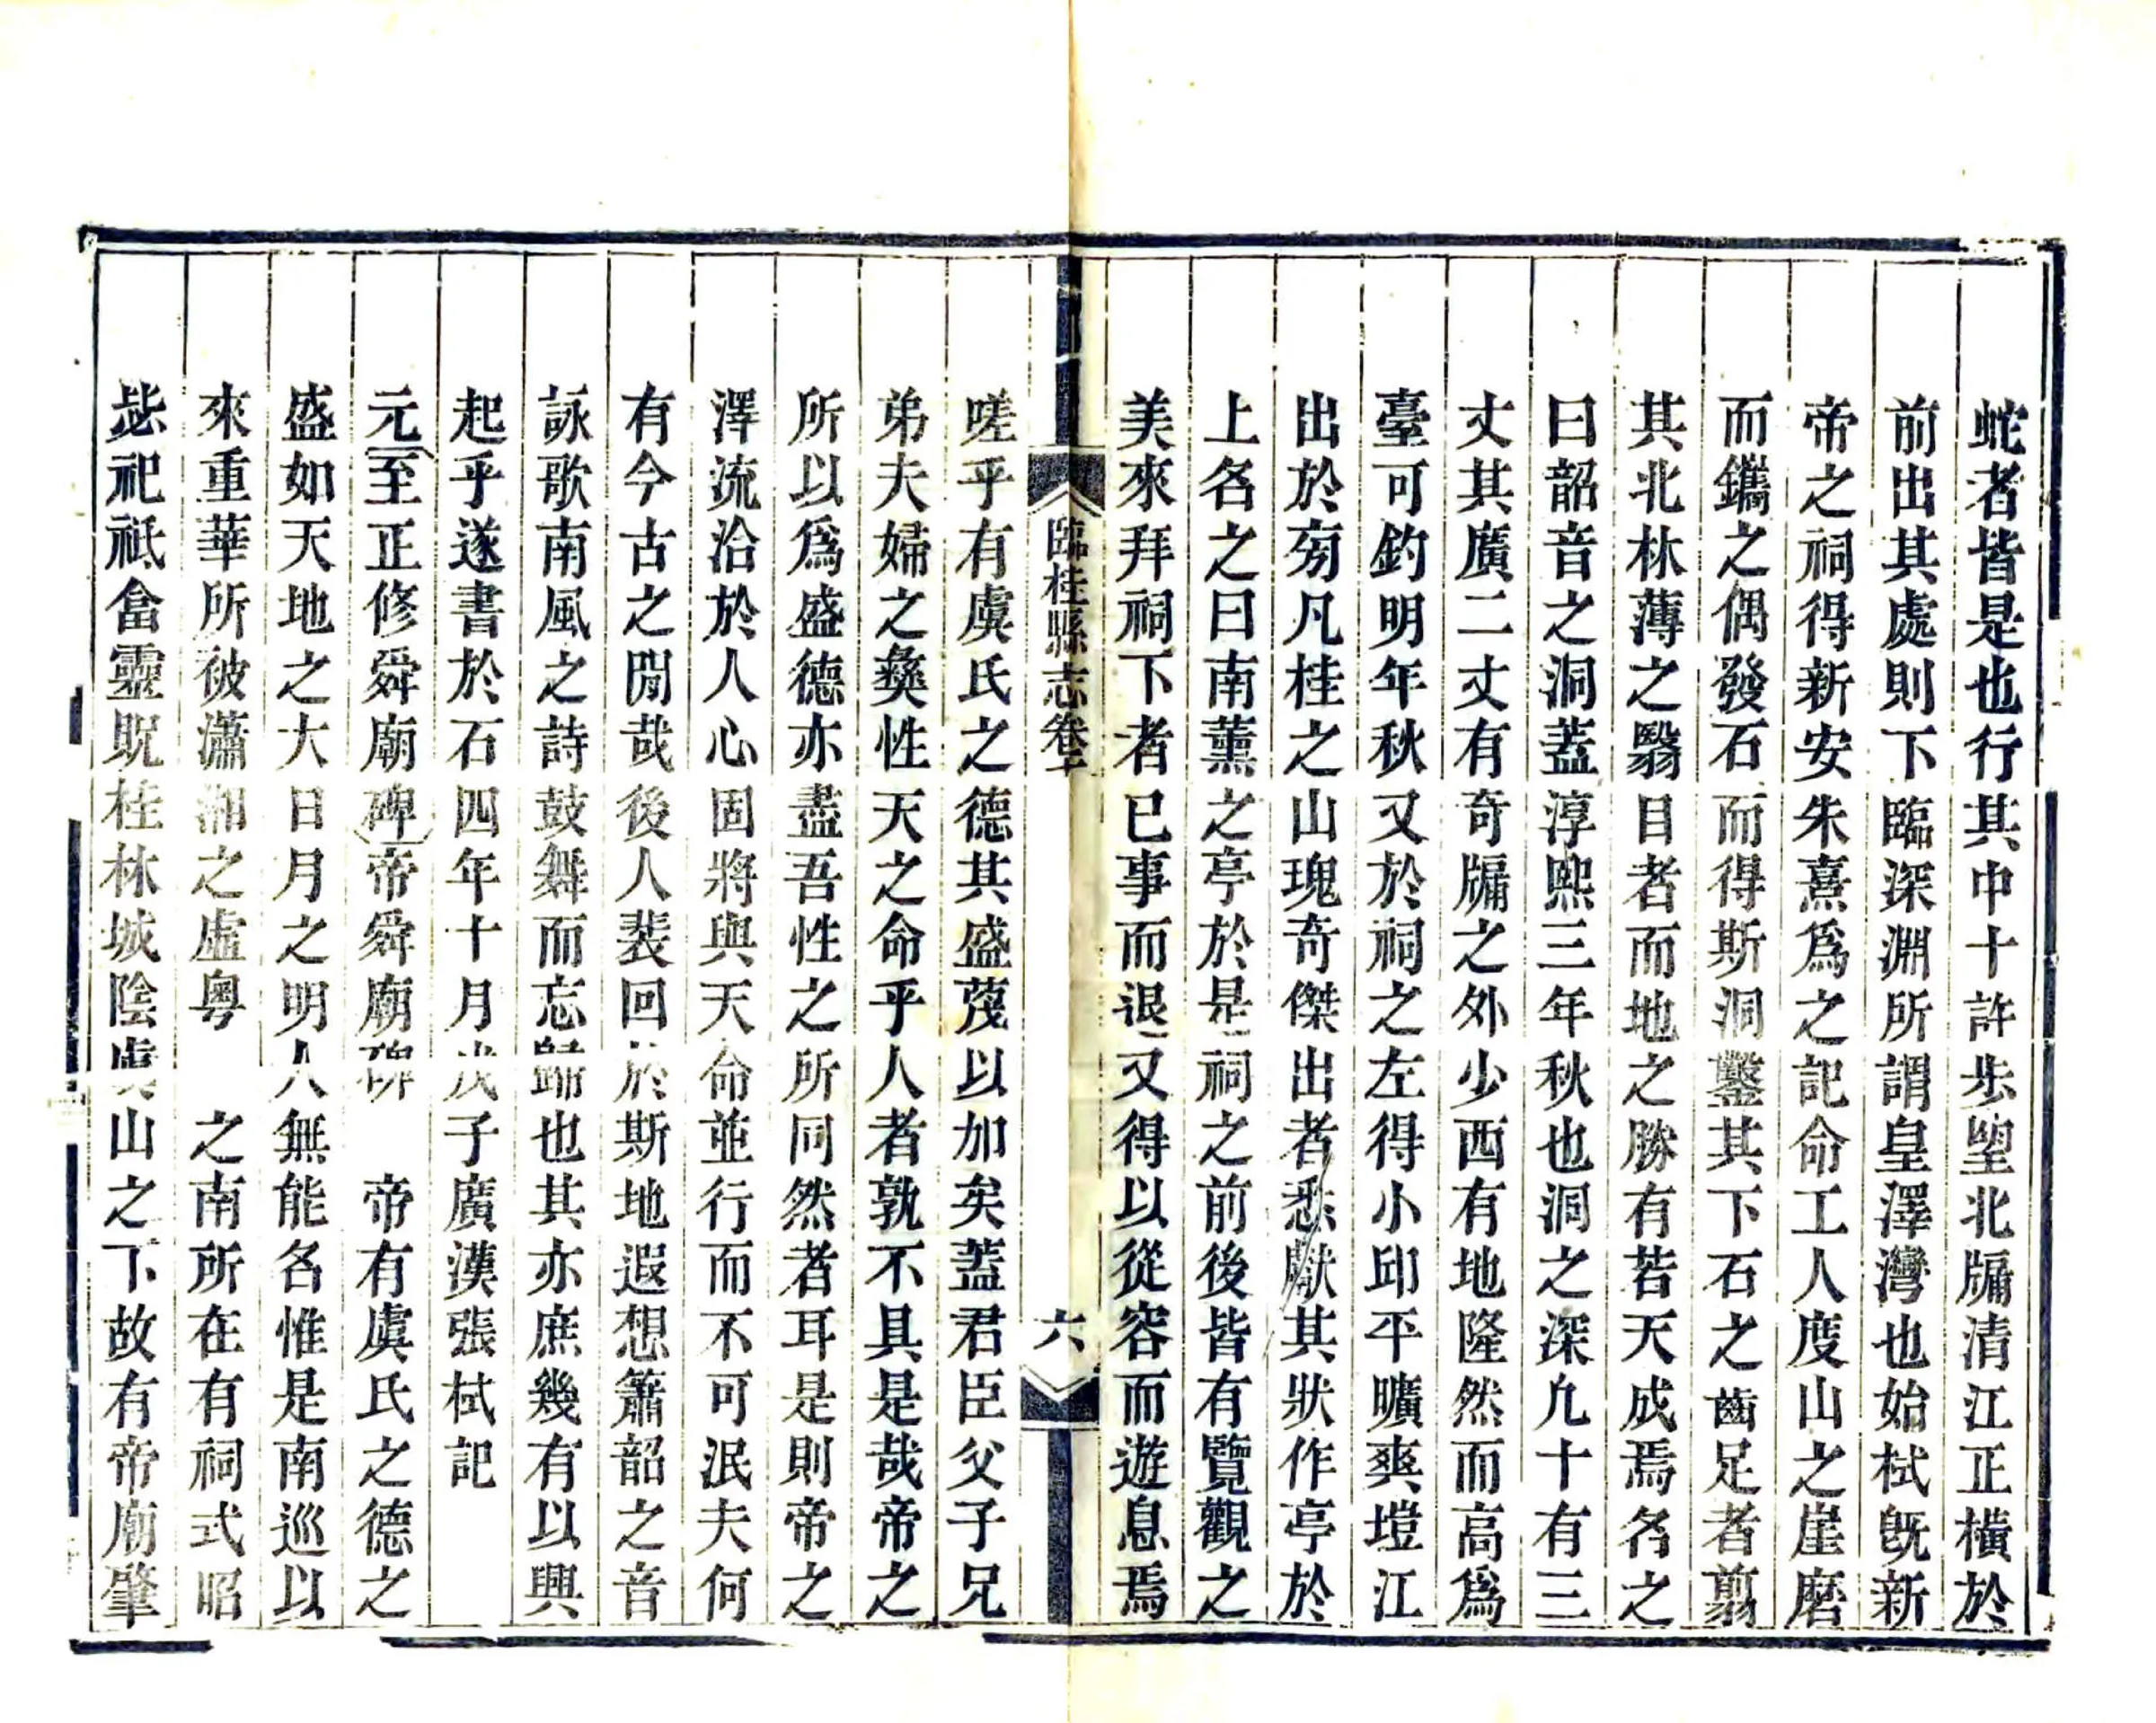 蛇者皆是也行其中十許步朢北牖清江正橫於
前出其處則下臨深淵所謂皇澤灣也始栻旣新
帝之祠得新安朱熹爲之記命工人度山之崖磨
而鐫之偶發石而得斯洞鑿其下石之齒足者剪
其北林薄之翳目者而地之勝有若天成焉名之
曰韶音之洞蓋淳熙三年秋也洞之深凢十有三
丈其廣二丈有奇牖之外少西有地隆然而高爲
臺可釣明年秋又於祠之左得小邱平曠爽塏江
出於旁凡桂之山瑰奇傑出者悉獻其狀作亭於
上名之曰南薰之亭於是祠之前後皆有覽觀之
美來拜祠下者已事而退又得以從容而遊息焉
臨桂縣志卷十
六
嗟乎有虞氏之德其盛蔑以加矣蓋君臣父子兄
弟夫婦之彝性天之命乎人者孰不具是哉帝之
所以爲盛德亦盡吾性之所同然者耳是則帝之
澤流洽於人心固將與天命並行而不可泯夫何
有今古之閒哉後人裴回於斯地遐想簫韶之音
詠歌南風之詩鼓舞而忘歸也其亦庶幾有以興
起乎遂書於石四年十月戊子廣漢張栻記
元至正修舜廟碑帝舜廟碑 帝有虞氏之德之
盛如天地之大日月之明人無能名惟是南巡以
來重華所彼瀟湘之虛粵 之南所在有祠式昭
毖祀祗畣靈貺桂林城陰虞山之下故有帝廟肇